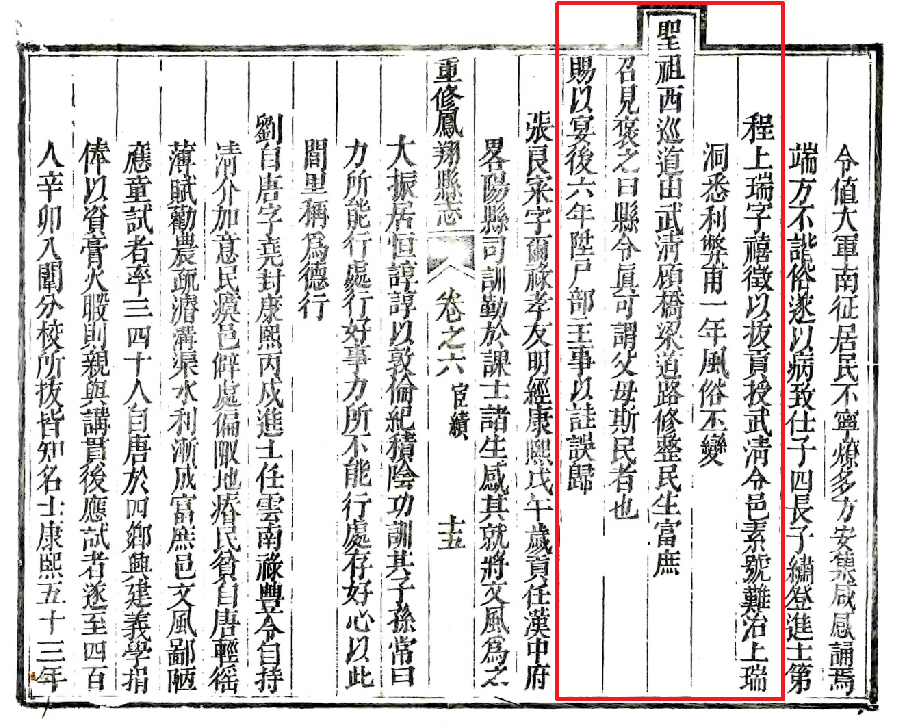 令值大軍南征居民不寧燎多方安集咸感誦焉
端方不諧俗遂以病致仕子四長子繡登進士第
程上瑞字禧徵以拔貢授武清令邑素號難治上瑞
洞悉利弊甫一年風俗丕變
聖祖西巡道由武清顧橋梁道路修整民生富庶
召見褒之曰縣令眞可謂父母斯民者也
賜以宴後六年陞戸部主事以詿誤歸
張良寀字爾祿孝友明經康熙戊午歲貢任漢中府
畧陽縣司訓勤於課士諸生感其就將文風為之
重修鳳翔縣志 卷之六 宦績 十五
大振居恒諄諄以敦倫紀積陰功訓其子孫常曰
力所能行處行好事力所不能行處存好心以此
閭里稱爲德行
劉自唐字堯封康熙丙戌進士任雲南祿豐令自持
清介加意民瘼邑僻處偏陬地瘠民貧自唐輕徭
薄賦勸農疏濬溝渠水利漸成富庶邑文風鄙陋
應童試者率三四十人自唐於四鄉興建義學捐
俸以資膏火暇則親與講貫後應試者遂至四百
人辛卯入闈分校所拔皆知名士康熙五十三年